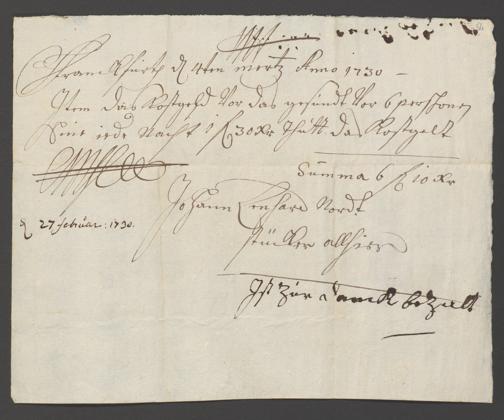 Franckfurth d 4ten mertz Anno 1730 –
Item das Kostgeld vor das gesindt vor 6 persohnen
Eine iede Nacht 1 f 30 Xr thutt das Kostgelt
Summa 6 f 10 Xr
Johann Lenhard Nordt
allhier
d 27 februar: 1730.
Ist zur danck bezalt